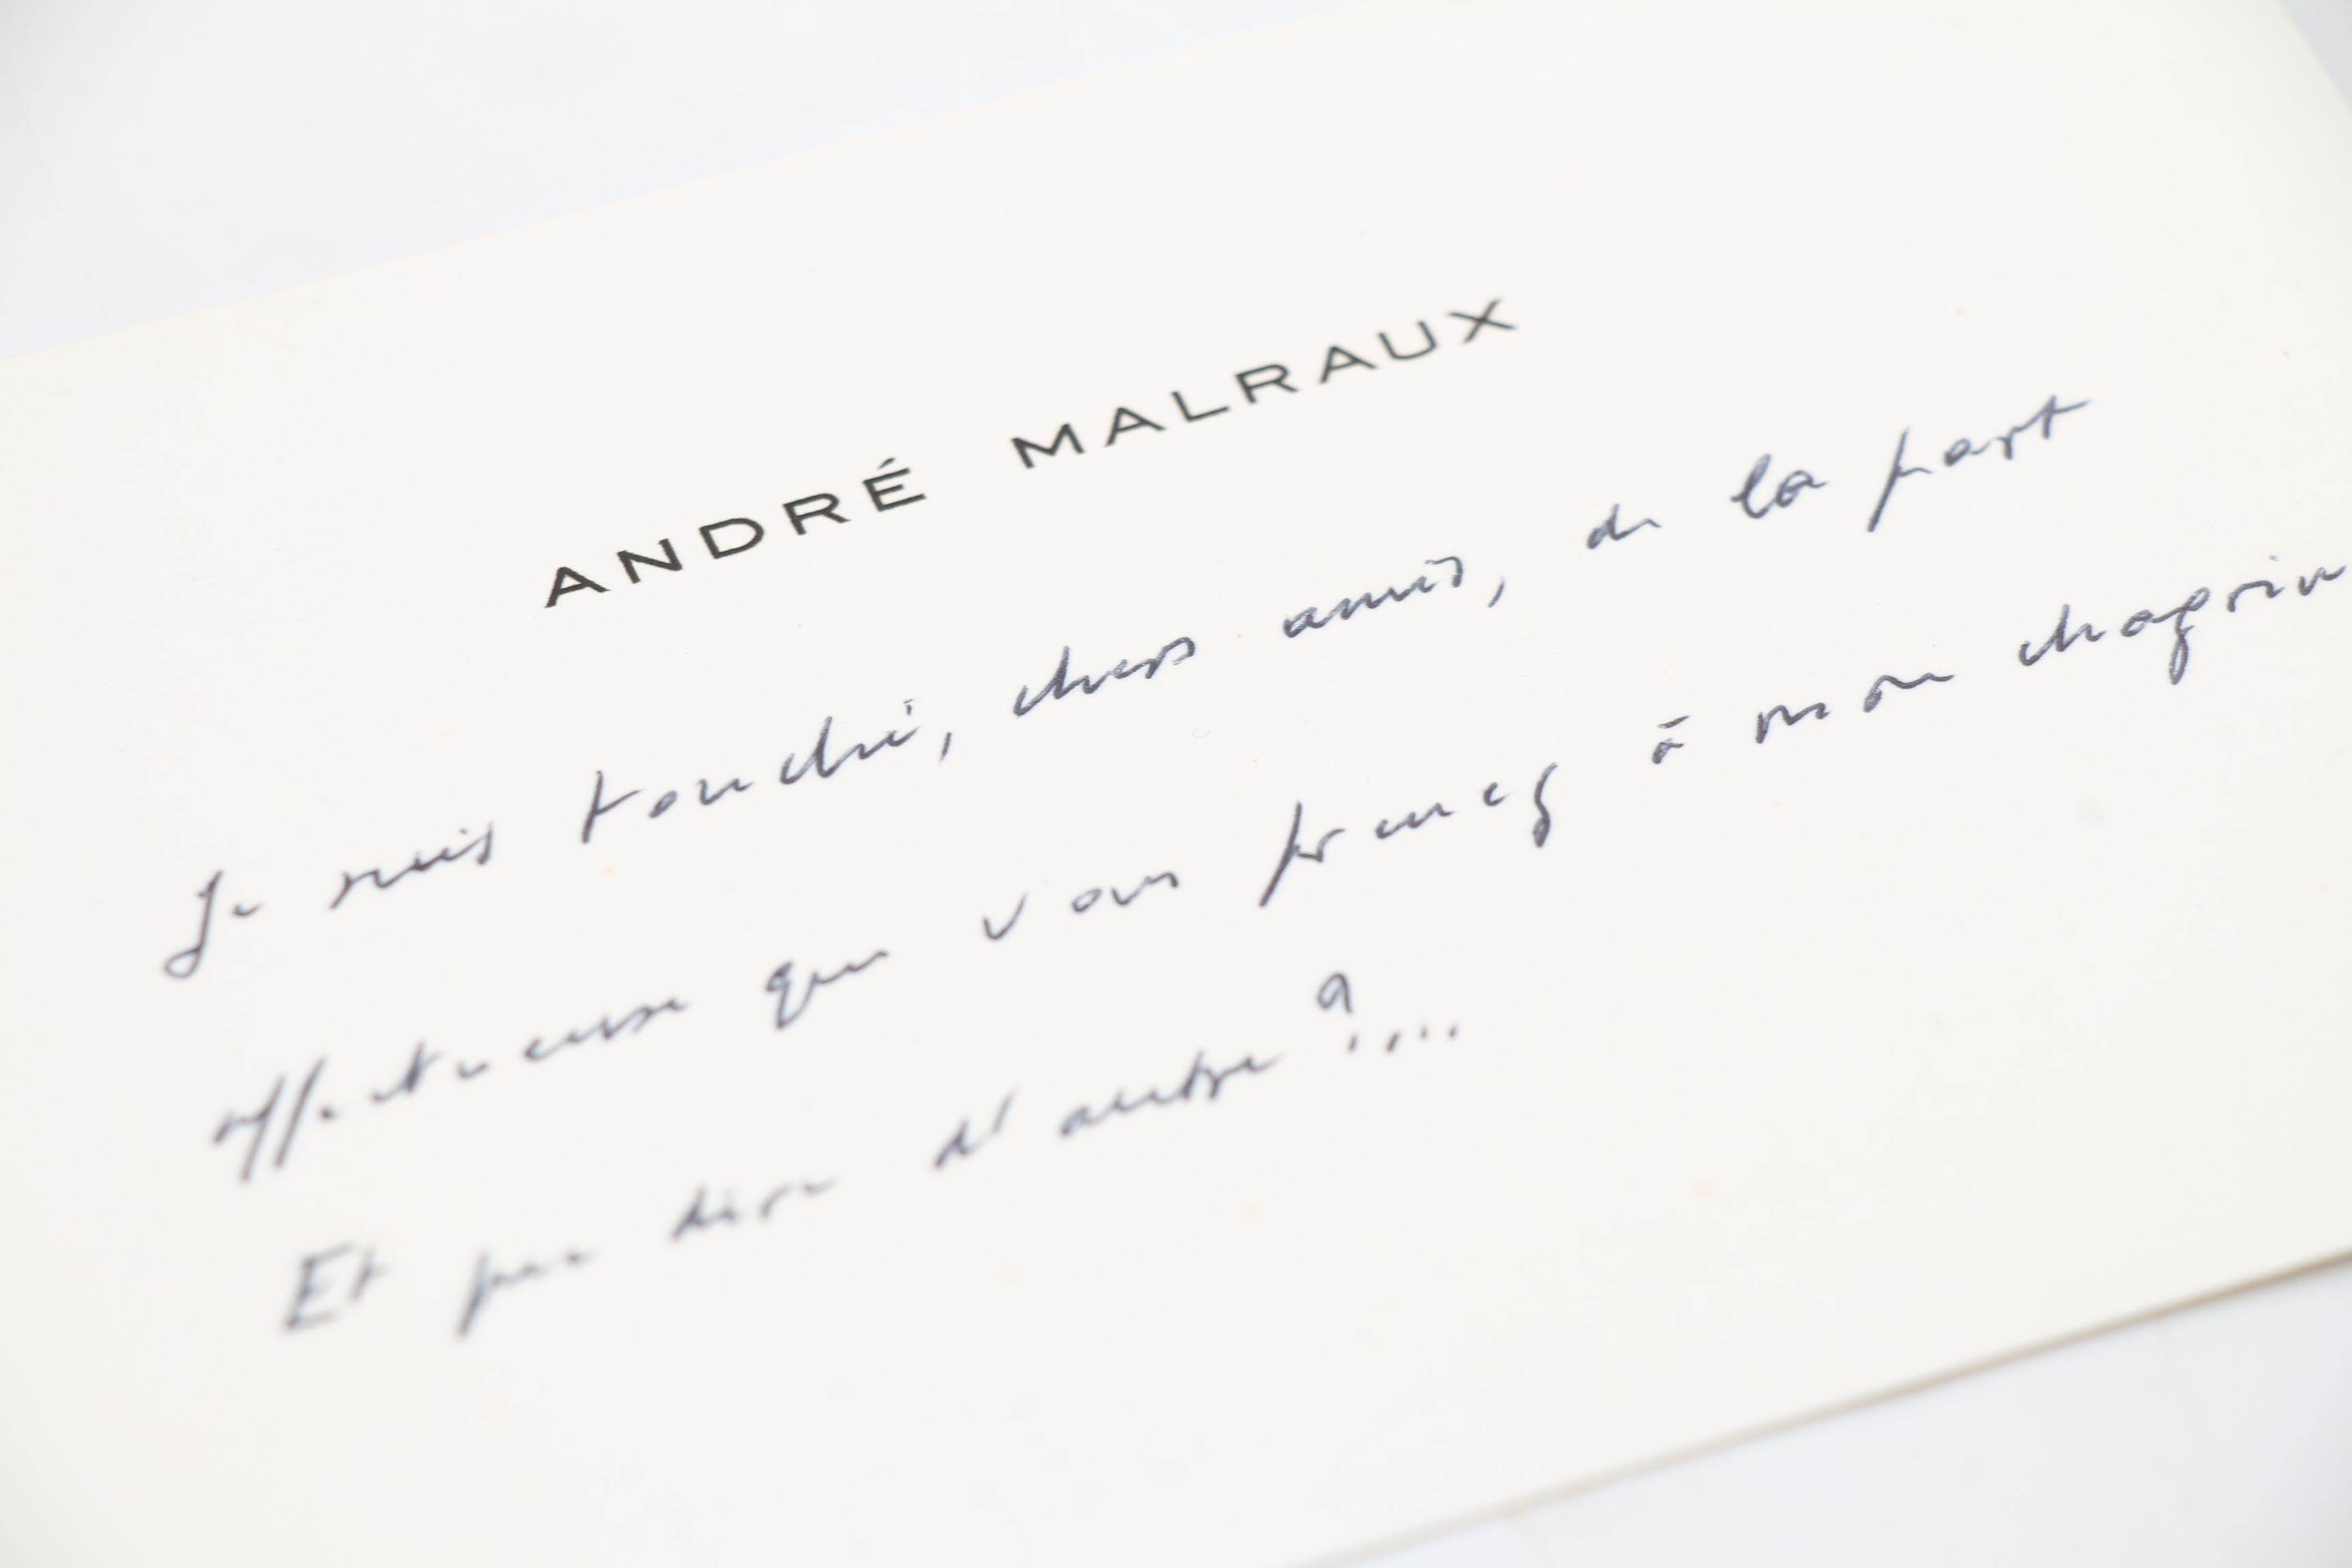 ANDRÉ MALRAUX
Je suis touché, chers amis, de la part
affectueuse que vous prenez à mon chagrin
Et que dire d'autre ?....